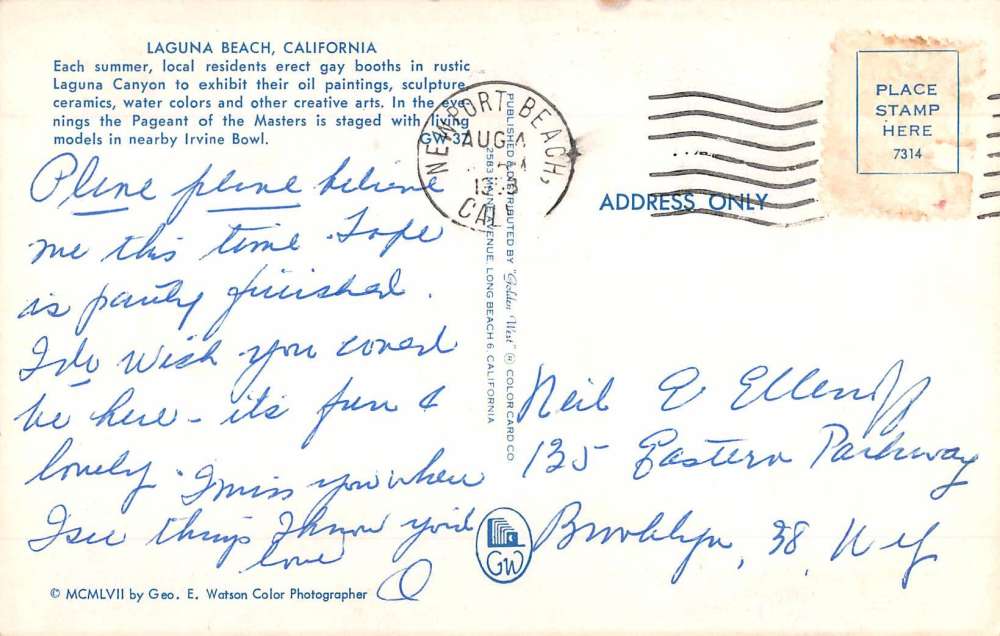 LAGUNA BEACH, CALIFORNIA
Each summer, local residents erect gay booths in rustic
Laguna Canyon to exhibit their oil paintings, sculpture,
ceramics, water colors and other creative arts. In the eve-
nings the Pageant of the Masters is staged with living
models in nearby Irvine Bowl. GW-37
Please please believe
me this time. Tape
is partly finished.
I do wish you could
be here - it's fun &
lovely. I miss you when
I see things I know you'd
love
© MCMLVII by Geo. E. Watson Color Photographer
PUBLISHED & DISTRIBUTED BY "Golden West" ® COLOR CARD CO
2583 MAIN AVENUE, LONG BEACH 6, CALIFORNIA
GW
NEWPORT BEACH,
AUG 4
CAL
PLACE
STAMP
HERE
7314
ADDRESS ONLY
Neil Ellenoff
135 Eastern Parkway
Brooklyn, 38, N Y